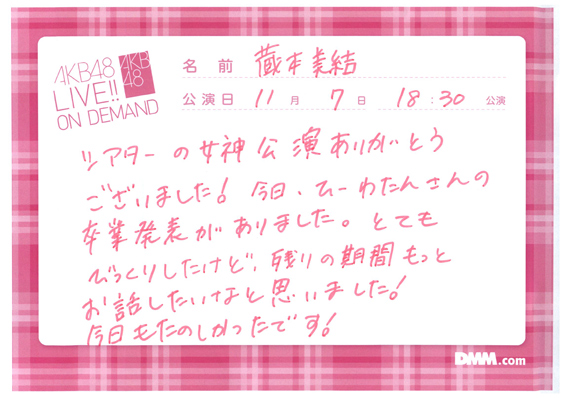 AKB48
LIVE!!
ON DEMAND
AKB
48
名前 蔵本美結
公演日 11月 7日 18:30 公演
シアターの女神公演ありがとう
ございました! 今日、ひーわたんさんの
卒業発表がありました。とても
びっくりしたけど、残りの期間もっと
お話したいなと思いました!
今日もたのしかったです!
DMM.com